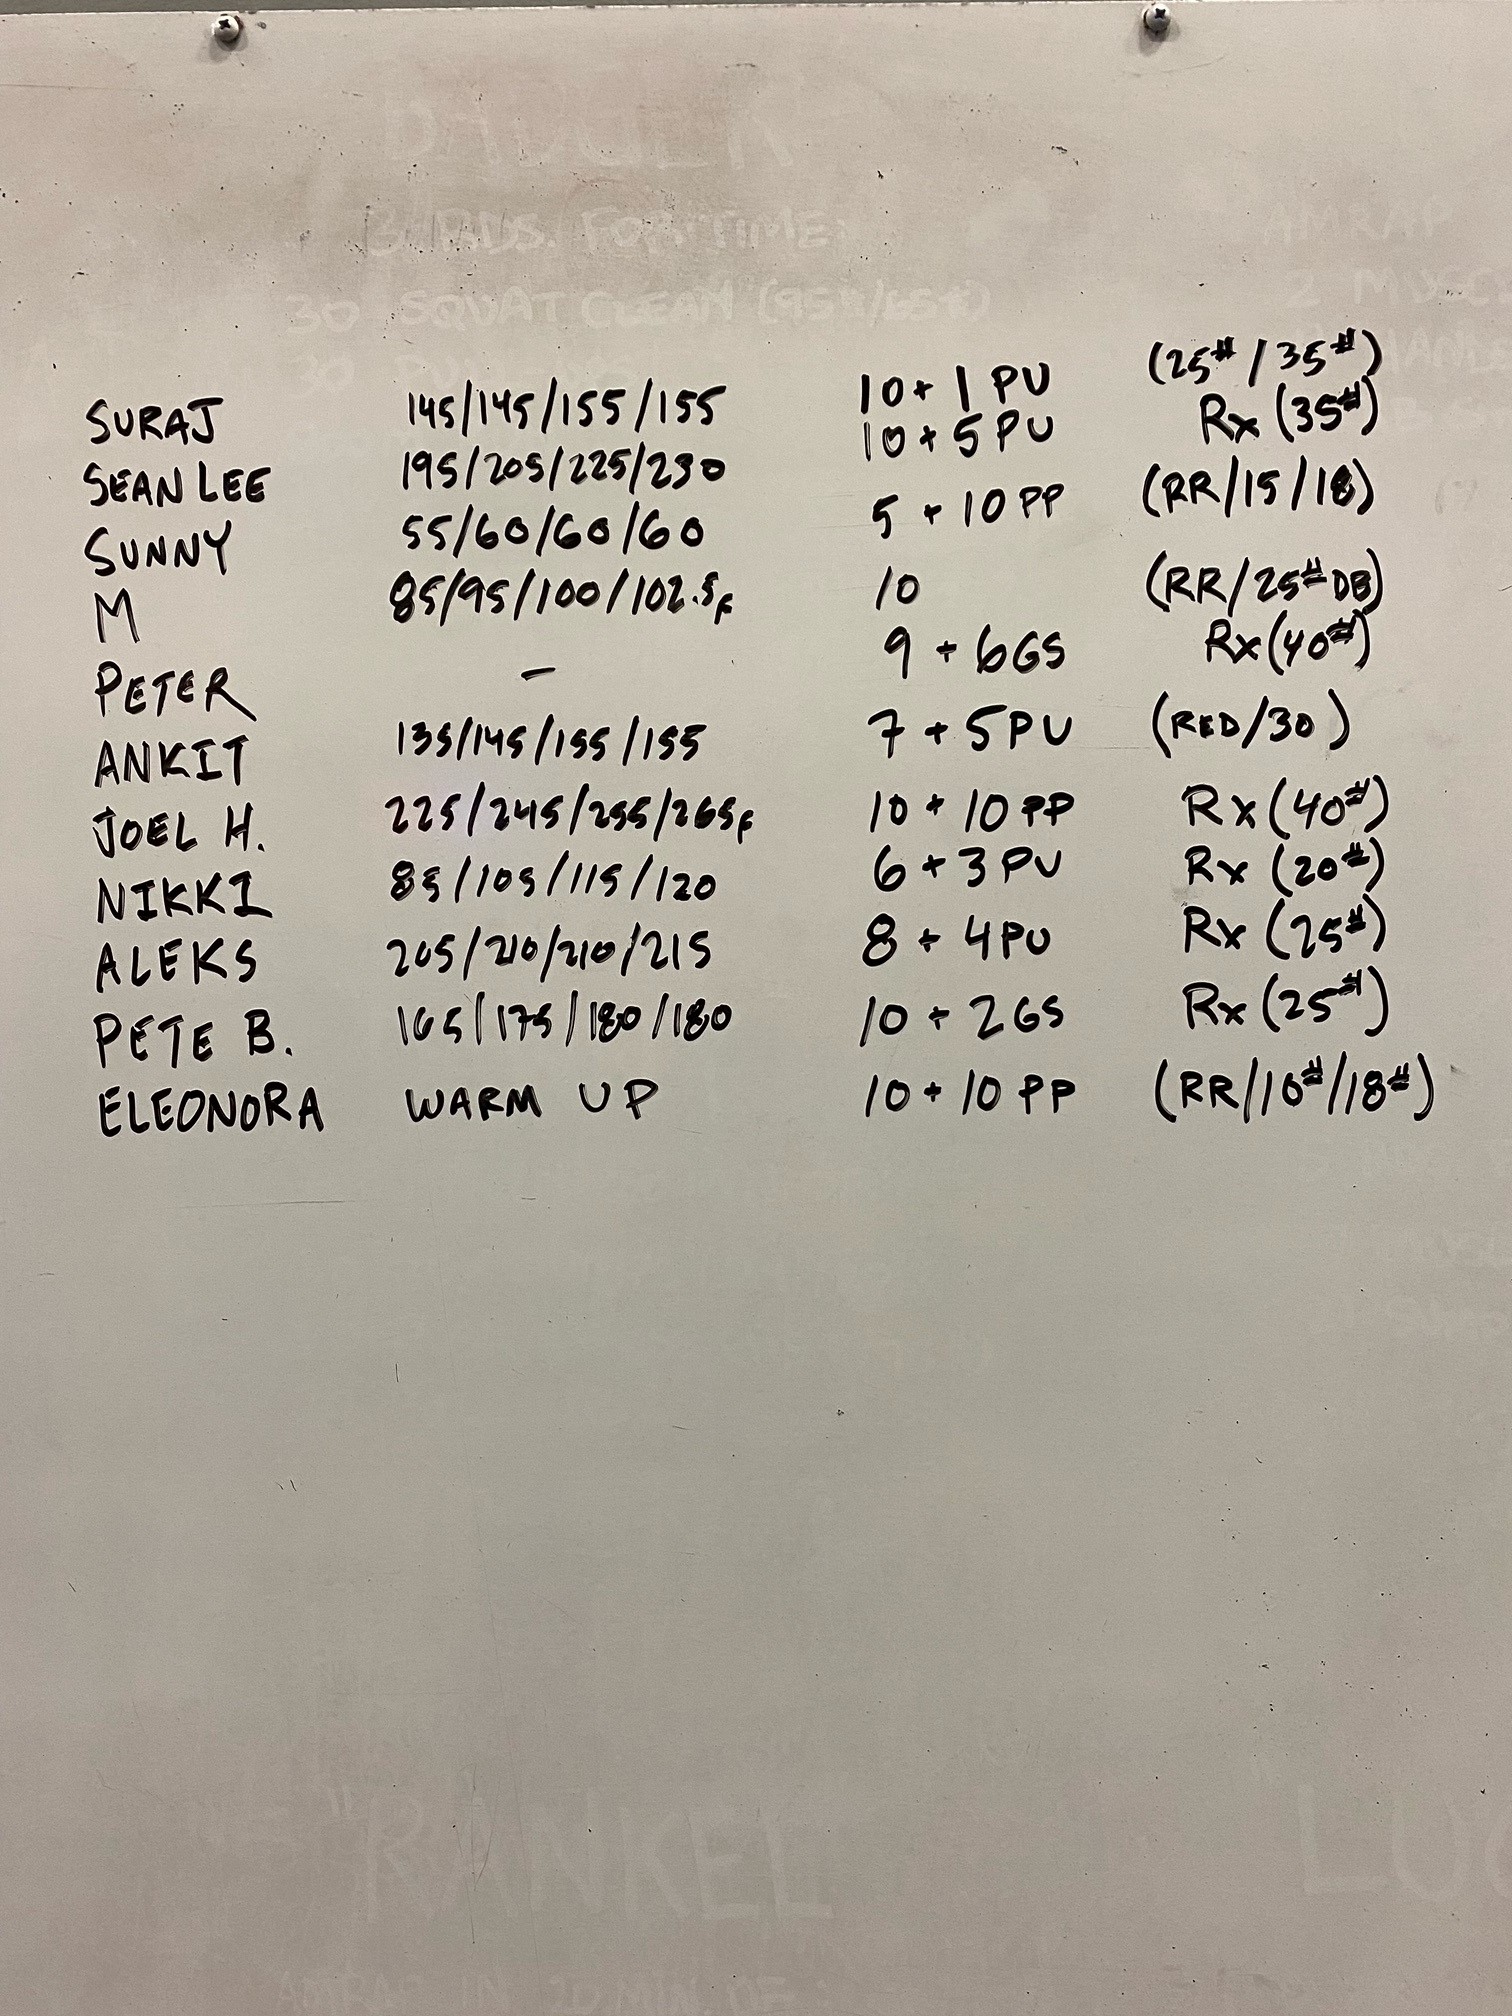 BADGER
3 RDS. FOR TIME:
AMRAP
30 SQUAT CLEAN (95#/65#)
2
30
SURAJ 145/145/155/155 10 + 1 PU (25#/35#)
SEAN LEE 195/205/225/230 10 + 5 PU Rx (35#)
SUNNY 55/60/60/60 5 + 10 PP (RR/15/18)
M 85/95/100/102.5F 10 (RR/25# DB)
PETER - 9 + 6GS Rx (40#)
ANKIT 135/145/155/155 7 + 5PU (RED/30)
JOEL H. 225/245/255/265F 10 + 10 PP Rx (40#)
NIKKI 85/105/115/120 6 + 3 PU Rx (20#)
ALEKS 205/210/210/215 8 + 4PU Rx (25#)
PETE B. 165/175/180/180 10 + 2GS Rx (25#)
ELEONORA WARM UP 10 + 10 PP (RR/10#/18#)
"RANKEL
AMRAP IN 20 MIN. OF: